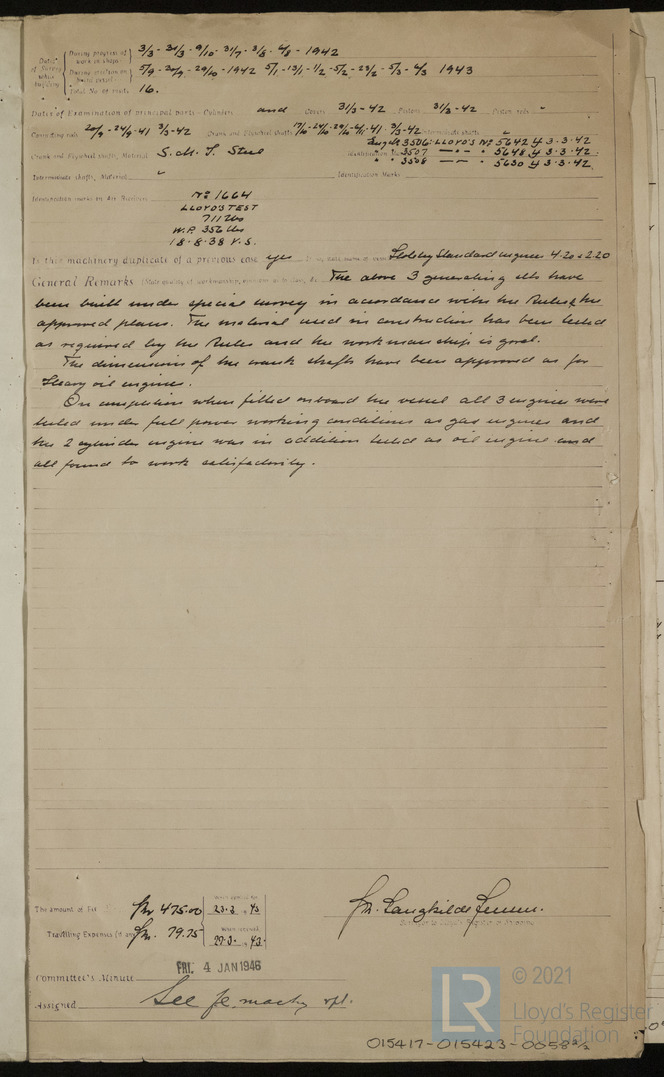 Dates of Survey while building
During progress of work in shops - 3/3 - 31/3 - 9/10 - 31/7 - 3/8 - 6/8 - 1942
During erection on board vessel - 5/9 - 20/9 - 29/10 - 1942 5/1 - 13/1 - 1/2 - 5/2 - 23/2 - 5/3 - 6/3 1943
Total No. of visits 16.
Dates of Examination of principal parts—Cylinders and Covers 31/3-42 Pistons 31/3-42 Piston rods "
Connecting rods 3/3-42 Crank and Flywheel shafts 3/3-42 Intermediate shafts "
Crank and Flywheel shafts, Material S.M. I. Steel Identification
3506: LLOYD'S No 5642 3.3.42
3507 — " — " 5648 3.3.42.
" 3508 — — " 5630 3.3.42.
Intermediate shafts, Material " Identification Marks
Identification marks on Air Receivers No 1664
LLOYD'S TEST
711 lbs
W.P. 356 lbs
18.8.38 V.S.
Is this machinery duplicate of a previous case yes If so, state name of vessel Holeby Standard engines 4-20 & 2-20
General Remarks (State quality of workmanship, opinions as to class, &c. The above 3 generating sets have
been built under special survey in accordance with the Rules & the
approved plans. The material used in construction has been tested
as required by the Rules and the workmanship is good.
The dimensions of the crank shafts have been approved as for
Heavy oil engines.
On completion when fitted onboard the vessel all 3 engines were
tested under full power working conditions as gas engines and
the 2 cylinder engine was in addition tested as oil engine and
all found to work satisfactorily.
The amount of Fee Kr 475.00 23.3.43
Travelling Expenses (if any) Kr. 79.75 27.3.43.
Langkilde Jensen.
Surveyor to Lloyd's Register of Shipping
Committee's Minute FRI. 4 JAN 1946
Assigned See fe machy rpt.
LR © 2021
Lloyd's Register
Foundation
015417-015423-0058 2/2